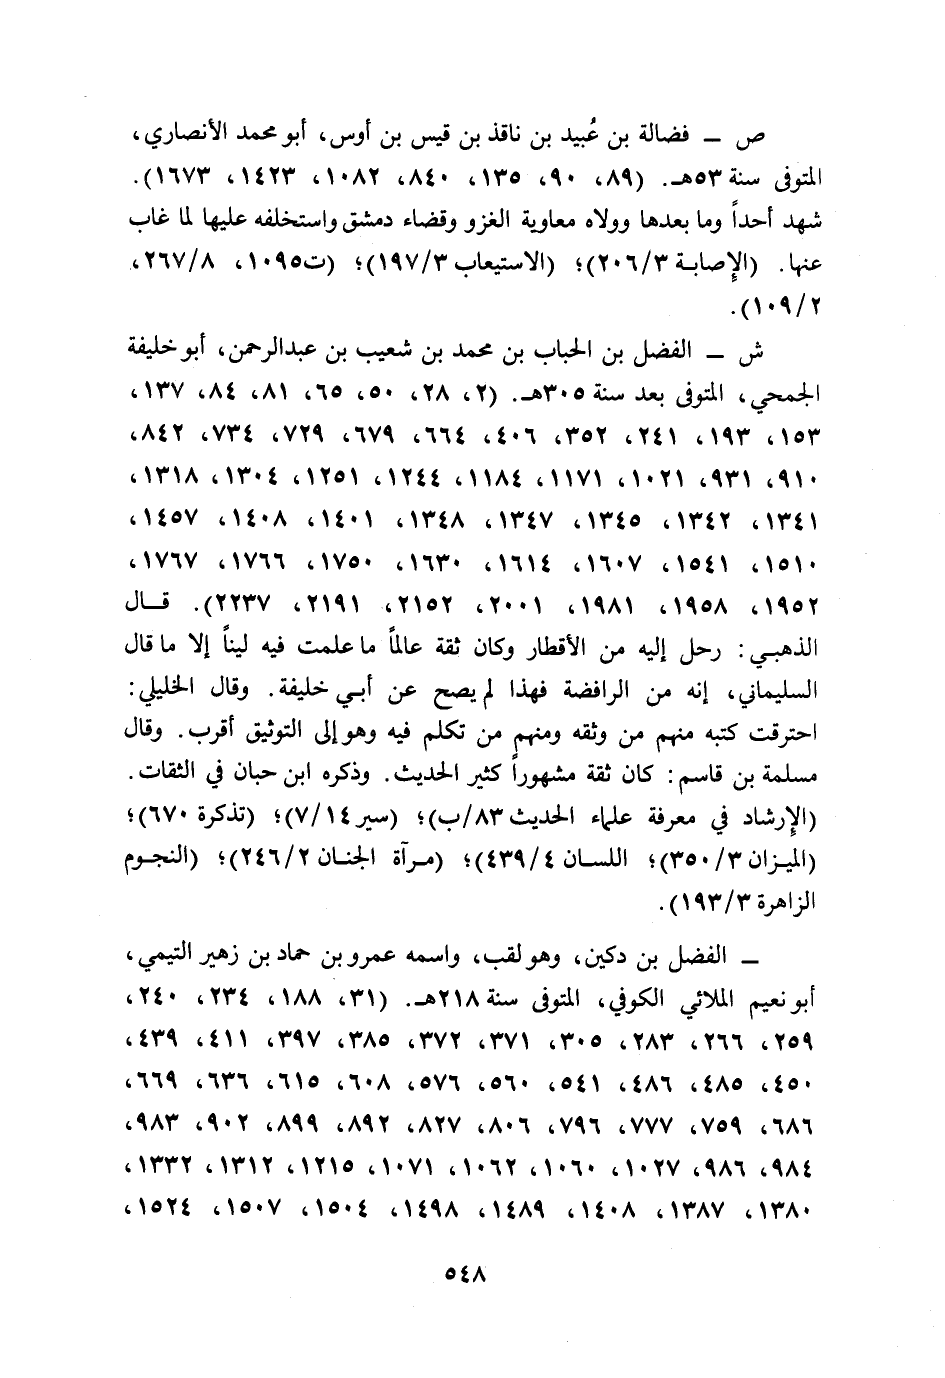 ص ــ فضالة بن عُبيد بن ناقذ بن قيس بن أوس، أبو محمد الأنصاري،
المتوفى سنة ٥٣هـ. (٨٩، ٩٠، ١٣٥، ٨٤٠، ١٠٨٢، ١٤٢٣، ١٦٧٣).
شهد أحداً وما بعدها وولاه معاوية الغزو وقضاء دمشق واستخلفه عليها لما غاب
عنها. (الإصابة ٢٠٦/٣)؛ (الاستيعاب ١٩٧/٣)؛ (ت١٠٩٥، ٢٦٧/٨،
١٠٩/٢).
ش ــ الفضل بن الحباب بن محمد بن شعيب بن عبدالرحمن، أبو خليفة
الجمحي، المتوفى بعد سنة ٣٠٥هـ. (٢، ٢٨، ٥٠، ٦٥، ٨١، ٨٤، ١٣٧،
١٥٣، ١٩٣، ٢٤١، ٣٥٢، ٤٠٦، ٦٦٤، ٦٧٩، ٧٢٩، ٧٣٤، ٨٤٢،
٩١٠، ٩٣١، ١٠٢١، ١١٧١، ١١٨٤، ١٢٤٤، ١٢٥١، ١٣٠٤، ١٣١٨،
١٣٤١، ١٣٤٢، ١٣٤٥، ١٣٤٧، ١٣٤٨، ١٤٠١، ١٤٠٨، ١٤٥٧،
١٥١٠، ١٥٤١، ١٦٠٧، ١٦١٤، ١٦٣٠، ١٧٥٠، ١٧٦٦، ١٧٦٧،
١٩٥٢، ١٩٥٨، ١٩٨١، ٢٠٠١، ٢١٥٢، ٢١٩١، ٢٢٣٧). قـــال
الذهبـي: رحل إليه من الأقطار وكان ثقة عالماً ما علمت فيه ليناً إلا ما قال
السليماني، إنه من الرافضة فهذا لم يصح عن أبـي خليفة. وقال الخليلي:
احترقت كتبه منهم من وثقه ومنهم من تكلم فيه وهو إلى التوثيق أقرب. وقال
مسلمة بن قاسم: كان ثقة مشهوراً كثير الحديث. وذكره ابن حبان في الثقات.
(الإرشاد في معرفة علماء الحديث ٨٣/ب)؛ (سير ٧/١٤)؛ (تذكرة ٦٧٠)؛
(الميـزان ٣٥٠/٣)؛ اللسـان ٤٣٩/٤)؛ (مـرآة الجنـان ٢٤٦/٢)؛ (النجـوم
الزاهرة ١٩٣/٣).
ــ الفضل بن دكين، وهو لقب، واسمه عمرو بن حماد بن زهير التيمي،
أبو نعيم الملائي الكوفي، المتوفى سنة ٢١٨هـ. (٣١، ١٨٨، ٢٣٤، ٢٤٠،
٢٥٩، ٢٦٦، ٢٨٣، ٣٠٥، ٣٧١، ٣٧٢، ٣٨٥، ٣٩٧، ٤١١، ٤٣٩،
٤٥٠، ٤٨٥، ٤٨٦، ٥٤١، ٥٦٠، ٥٧٦، ٦٠٨، ٦١٥، ٦٣٦، ٦٦٩،
٦٨٦، ٧٥٩، ٧٧٧، ٧٩٦، ٨٠٦، ٨٢٧، ٨٩٢، ٨٩٩، ٩٠٢، ٩٨٣،
٩٨٤، ٩٨٦، ١٠٢٧، ١٠٦٠، ١٠٦٢، ١٠٧١، ١٢١٥، ١٣١٢، ١٣٣٢،
١٣٨٠، ١٣٨٧، ١٤٠٨، ١٤٨٩، ١٤٩٨، ١٥٠٤، ١٥٠٧، ١٥٢٤،
٥٤٨